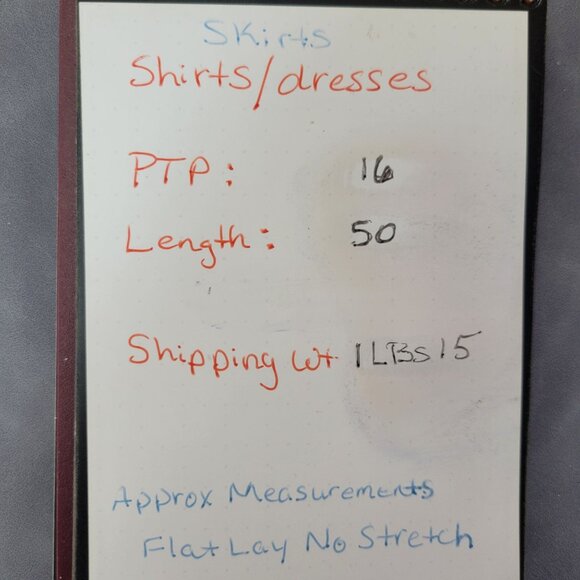 Skirts
Shirts/dresses
PTP: 16
Length: 50
Shipping Wt 1LBS15
Approx Measurements
Flat Lay No Stretch